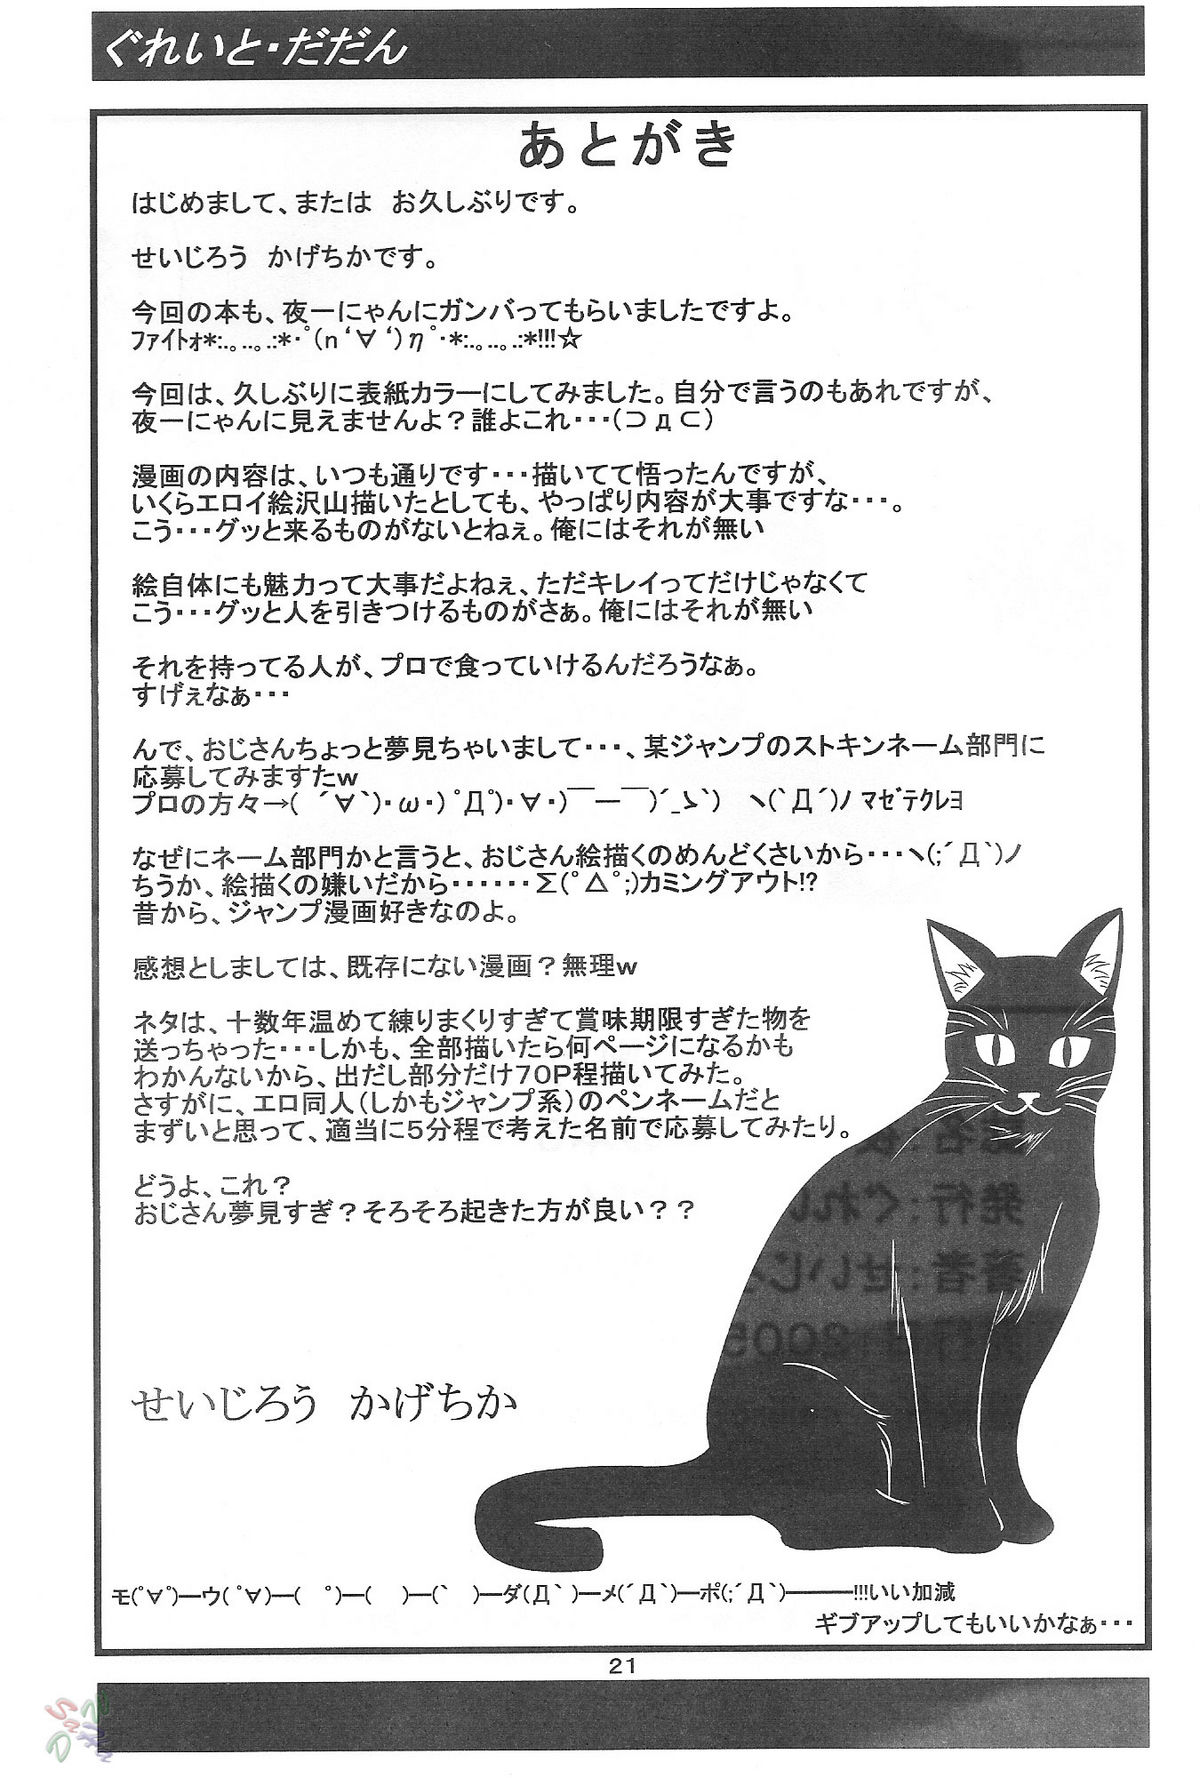 ぐれいと・だだん
あとがき
はじめまして、または　お久しぶりです。
せいじろう　かげちかです。
今回の本も、夜一にゃんにガンバってもらいましたですよ。
ﾌｧｲﾄｫ*:.｡..｡.:*･ﾟ(n‘∀‘)ηﾟ･*:.｡..｡.:*!!!☆
今回は、久しぶりに表紙カラーにしてみました。自分で言うのもあれですが、
夜一にゃんに見えませんよ？誰よこれ・・・(⊃д⊂)
漫画の内容は、いつも通りです・・・描いてて悟ったんですが、
いくらエロイ絵沢山描いたとしても、やっぱり内容が大事ですな・・・。
こう・・・グッと来るものがないとねぇ。俺にはそれが無い
絵自体にも魅力って大事だよねぇ、ただキレイってだけじゃなくて
こう・・・グッと人を引きつけるものがさぁ。俺にはそれが無い
それを持ってる人が、プロで食っていけるんだろうなぁ。
すげぇなぁ・・・
んで、おじさんちょっと夢見ちゃいまして・・・、某ジャンプのストキンネーム部門に
応募してみますたｗ
プロの方々→( ´∀`)･ω･)ﾟДﾟ)･∀･)￣ー￣)´_ゝ`)　ヽ(`Д´)ﾉ ﾏｾﾞﾃｸﾚﾖ
なぜにネーム部門かと言うと、おじさん絵描くのめんどくさいから・・・ヽ(;´Д`)ノ
ちうか、絵描くの嫌いだから・・・・・・Σ(ﾟ△ﾟ;)カミングアウト!?
昔から、ジャンプ漫画好きなのよ。
感想としましては、既存にない漫画？無理ｗ
ネタは、十数年温めて練りまくりすぎて賞味期限すぎた物を
送っちゃった・・・しかも、全部描いたら何ページになるかも
わかんないから、出だし部分だけ70P程描いてみた。
さすがに、エロ同人(しかもジャンプ系)のペンネームだと
まずいと思って、適当に5分程で考えた名前で応募してみたり。
どうよ、これ？
おじさん夢見すぎ？そろそろ起きた方が良い？？
せいじろう　かげちか
モ(ﾟ∀ﾟ)―ウ( ﾟ∀)―(　ﾟ)―(　 )―(`　)―ダ(Д` )―メ(´Д`)―ポ(;´Д`)―――!!!いい加減
ギブアップしてもいいかなぁ・・・
21